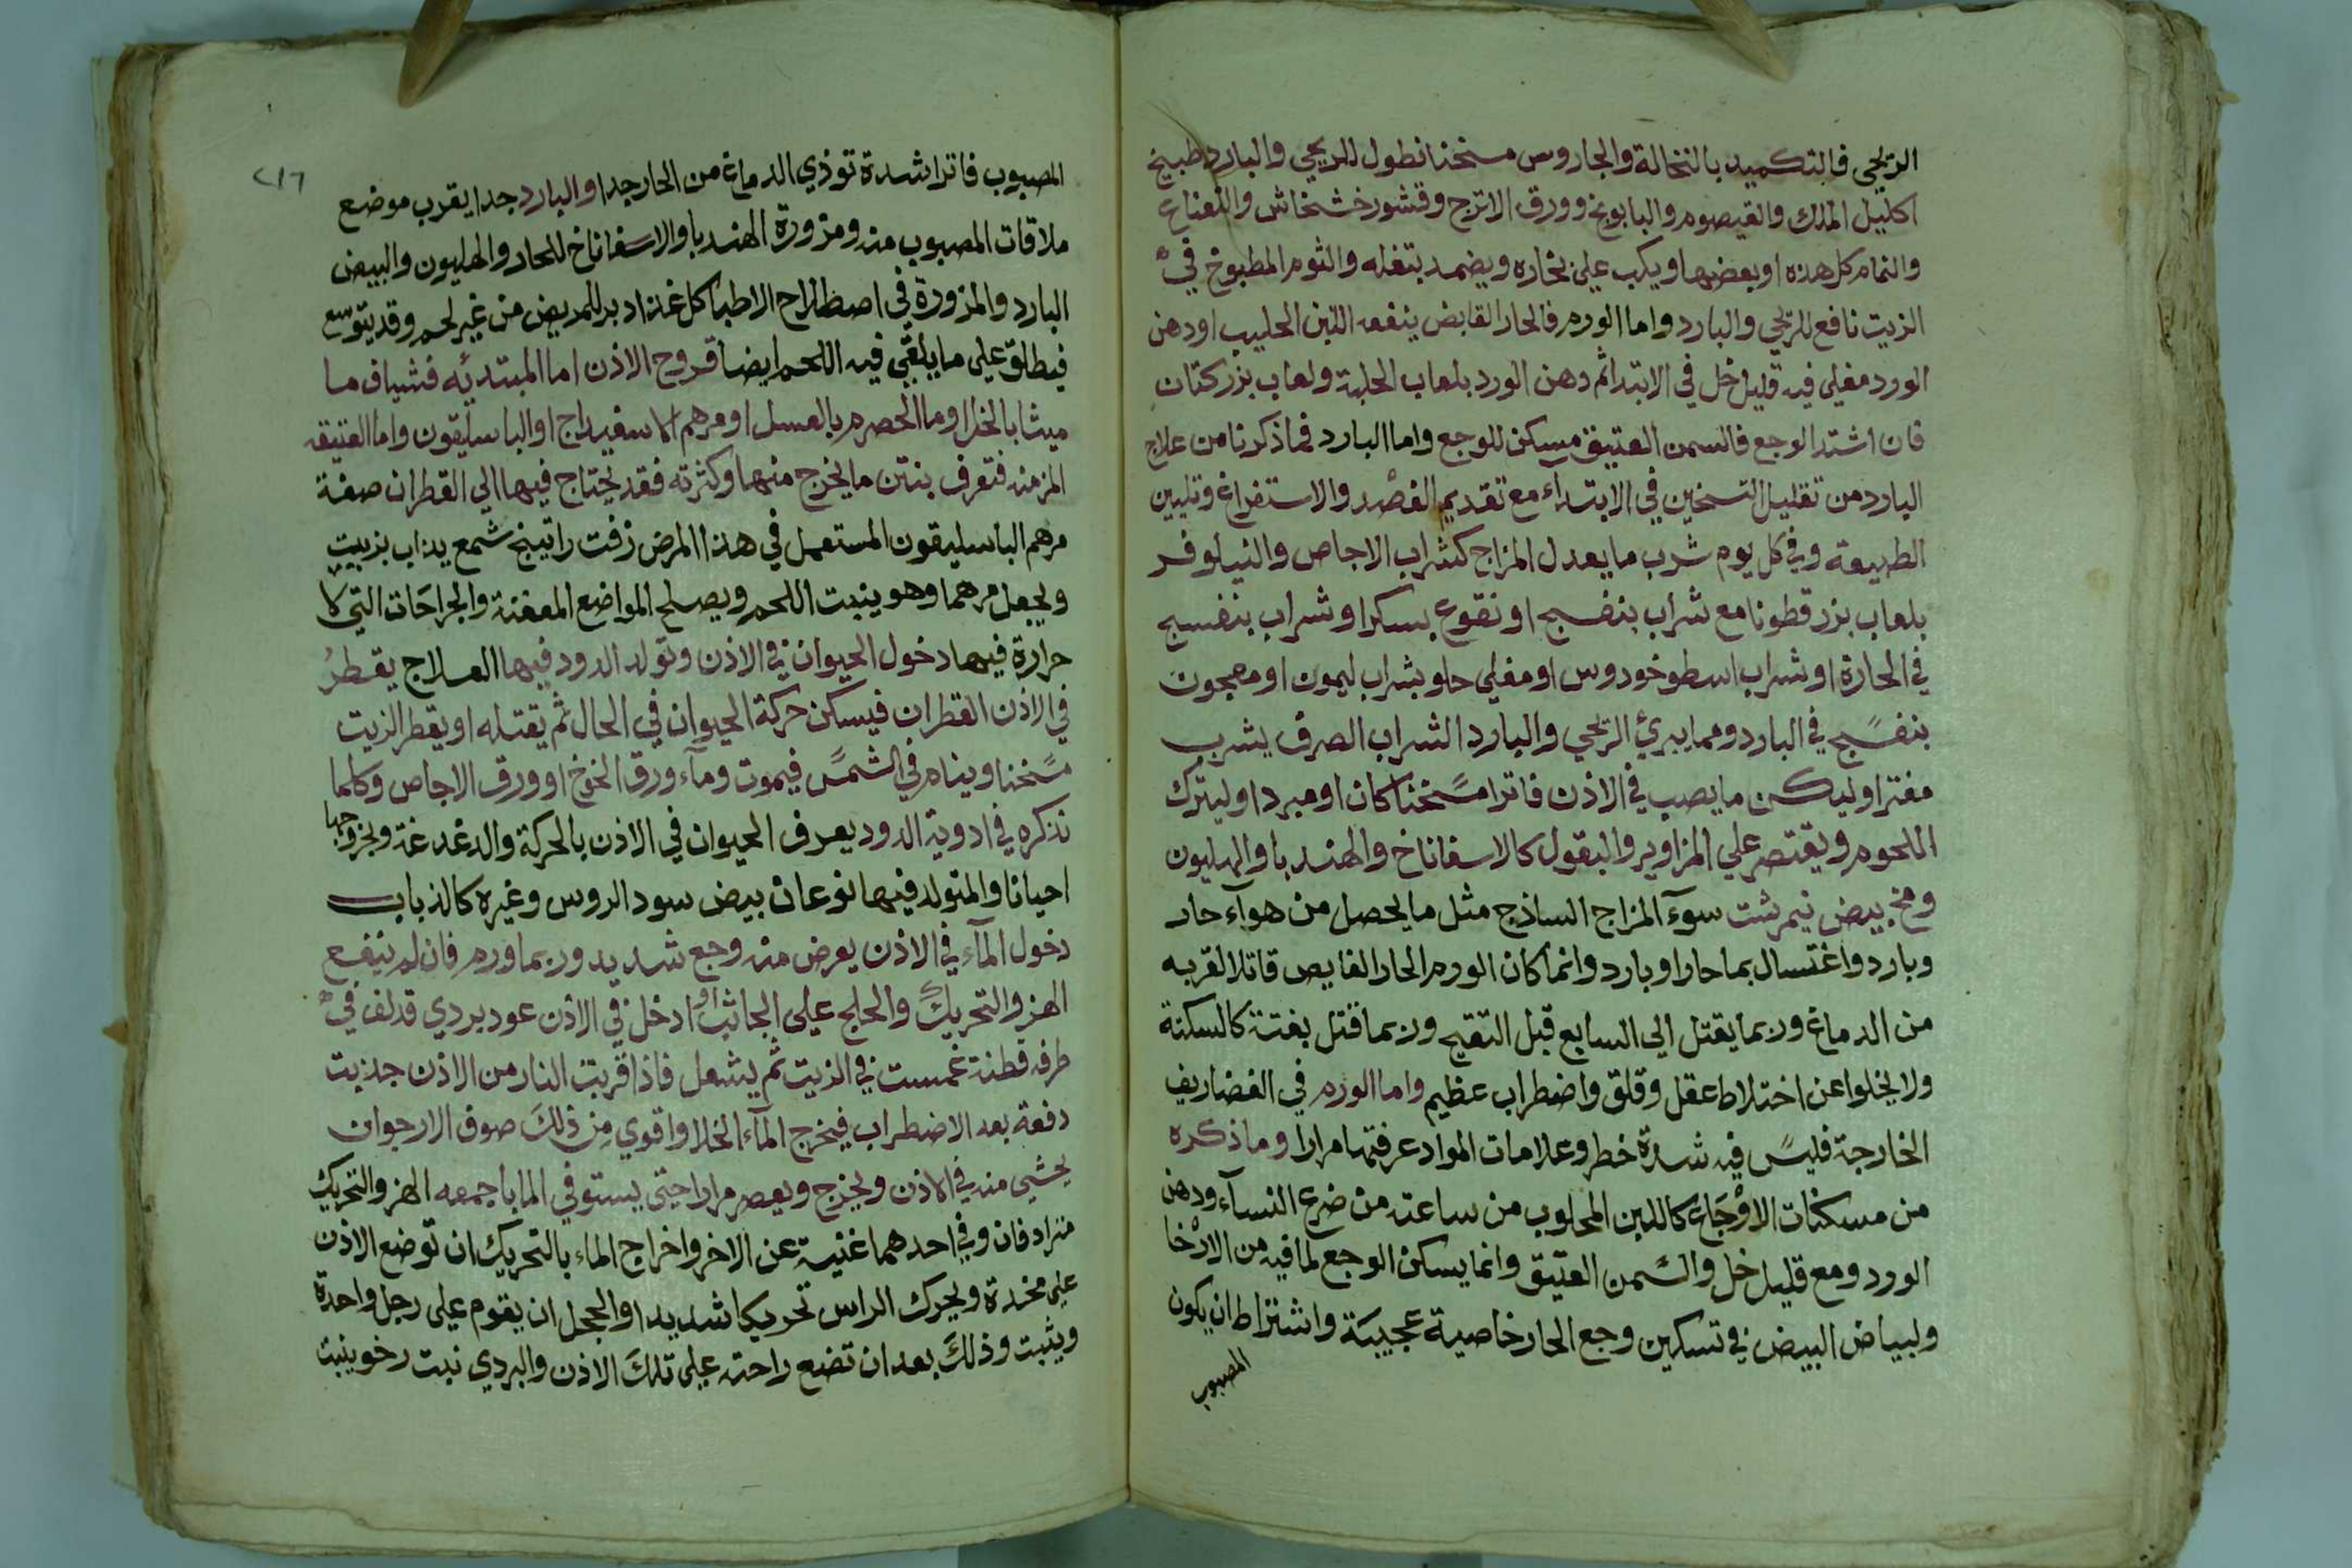 الريحي فبالتكميد بالنخالة والجاروس مسخنا نطول للريحي والبارد طبيخ
اكليل الملك والقيصوم والبابونج وورق الاترج وقشور خشخاش والنعناع
والنمام كل هذه او بعضها ويكب علي بخاره ويضمد بتفله والثوم المطبوخ في
الزيت نافع للريحي والبارد واما الورم فالحار الغايض ينفعه اللبن الحليب او دهن
الورد مغلي فيه قليل خل في الابتدا ثم دهن الورد بلعاب الحلبة ولعاب بزر كتان
فان اشتد الوجع فالسمن العتيق مسكن للوجع واما البارد فما ذكرنا من علاج
البارد من تقليل التسخين في الابتداء مع تقديم الفصد والاستفراغ وتليين
الطبيعة وفي كل يوم شرب ما يعدل المزاج كشراب الاجاص والنيلوفر
بلعاب بزر قطونا مع شراب بنفسج او نقوع بسكر او شراب بنفسج
في الحارة او شراب اسطوخودوس او مغلي حلو بشراب ليمون او معجون
بنفسج في البارد ومما يبرئ الريحي والبارد الشراب الصرف يشرب
مفترا وليكن ما يصب في الاذن فاترا مسخنا كان او مبردا وليترك
اللحوم ويقتصر علي المزاوير والبقول كالاسفاناخ والهندبا والهليون
ومخ بيض نيمرشت سوء المزاج الساذج مثل ما يحصل من هواء حار
وبارد واغتسال بما حار او بارد وانما كان الورم الحار الغايص قاتلا لقربه
من الدماغ وربما يقتل الي السابع قبل التقيح وربما قتل بغتة كالسكتة
ولا يخلوا عن اختلاط عقل وقلق واضطراب عظيم واما الورم في الغضاريف
الخارجة فليس فيه شدة خطر وعلامات المواد عرفتها مرارا وما ذكره
من مسكنات الاوجاع كاللبن المحلوب من ساعته من ضرع النساء ودهن
الورد ومع قليل خل والسمن العتيق وانما يسكن الوجع لما فيه من الارخا
ولبياض البيض في تسكين وجع الحار خاصية عجيبة واشتراط ان يكون
المصبوب
٢١٦
المصبوب فاترا شدة توذي الدماغ من الحار جدا والبارد جدا يقرب موضع
ملاقات المصبوب منه ومزورة الهندبا والاسفاناخ للحار والهليون والبيض
البارد والمزورة في اصطلاح الاطبا كل غذا دبر للمريض من غير لحم وقد يتوسع
فيطلق علي ما يلقي فيه اللحم ايضا قروح الاذن اما المبتديه فشياف ما
ميثا بالخل او ما الحصرم بالعسل او مرهم الاسفيداج او الباسليقون واما العتيقه
المزمنه فتعرف بنتن ما يخرج منها وكثرته فقد يحتاج فيها الي القطران صفة
مرهم الباسليقون المستعمل في هذا المرض زفت راتينج شمع يذاب بزيت
ويجعل مرهما وهو ينبت اللحم ويصلح المواضع المعفنة والجراحات التي لا
حرارة فيها دخول الحيوان في الاذن وتولد الدود فيها العلاج يقطر
في الاذن القطران فيسكن حركة الحيوان في الحال ثم يقتله او يقطر الزيت
مسخنا وينام في الشمس فيموت وماء ورق الخوخ او ورق الاجاص وكلما
نذكره في ادوية الدود يعرف الحيوان في الاذن بالحركة والدغدغة وبخروجها
احيانا والمتولد فيها نوعان بيض سود الروس وغيره كالذباب
دخول الماء في الاذن يعرض منه وجع شديد وربما ورم فان لم ينفع
الهز والتحريك والحلج علي الجانب او ادخل في الاذن عود بردي قد لف في
طرفه قطنة غمست في الزيت ثم يشعل فاذا قربت النار من الاذن جذبت
دفعة بعد الاضطراب فيخرج الماء الخلا واقوي من ذلك صوف الارجوان
يحشي منه في الاذن ويخرج ويعصر مرارا حتي يستوفي الما باجمعه الهز والتحريك
مترادفان وفي احدهما غنية عن الاخر واخراج الماء بالتحريك ان توضع الاذن
علي مخدة ويحرك الراس تحريكا شديدا والحجل ان يقوم علي رجل واحدة
ويثبت وذلك بعد ان تضع راحته علي تلك الاذن والبردي نبت رخو ينبت